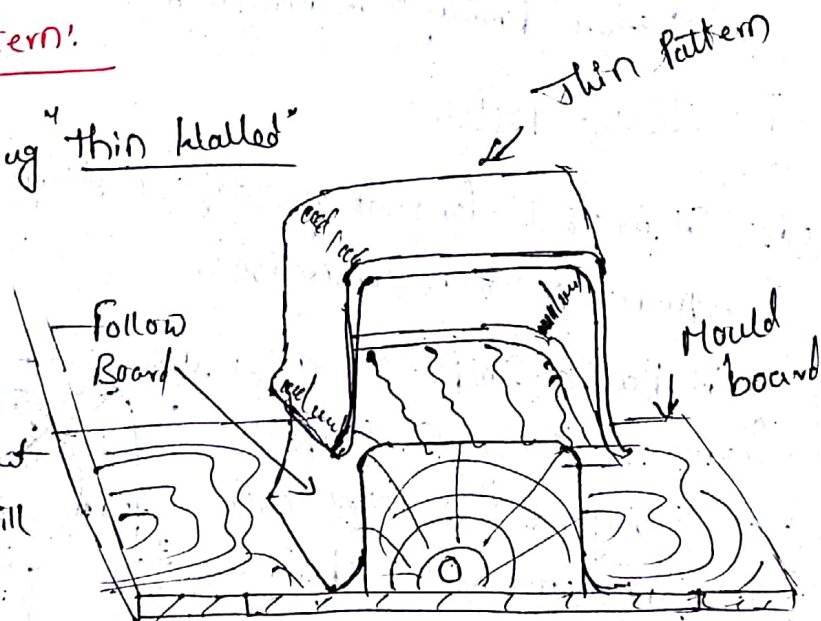 tern:
ug "Thin Walled"
Thin Pattern
Follow
Board
Mould
board
ill